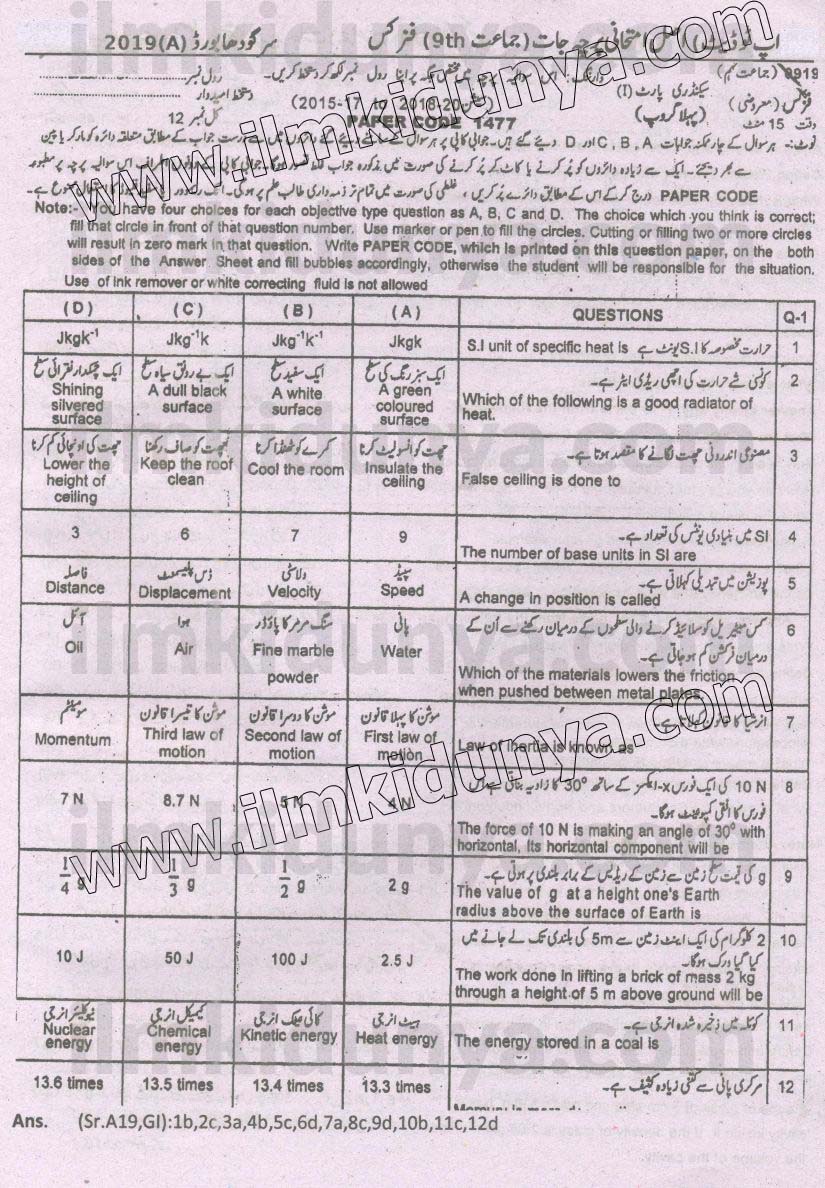 اپ ٹو ڈیٹ امتحانی پرچہ جات (جماعت 9th) فزکس سرگودھا بورڈ 2019(A)
0919 (جماعت نہم) وارننگ: اس سوالیہ پرچہ میں مختص جگہ پر اپنا رول نمبر لکھ کر دستخط کریں۔ رول نمبر
فزکس (معروضی) سیکنڈری پارٹ (I) (2015-17 to 2018-20) دستخط امیدوار
وقت 15 منٹ (پہلا گروپ) PAPER CODE 1477 کل نمبر 12
نوٹ:- ہر سوال کے چار ممکنہ جوابات C, B, A اور D دیئے گئے ہیں۔ جوابی کاپی پر ہر سوال کے دائروں میں سے درست جواب کے مطابق متعلقہ دائرہ کو مارکر یا پین
سے بھر دیجئے۔ ایک سے زیادہ دائروں کو پُر کرنے یا کاٹ کر پُر کرنے کی صورت میں مذکورہ جواب غلط تصور ہوگا۔ جوابی کاپی کے اس سوالیہ پرچہ پر مطبوعہ
PAPER CODE درج کرکے اس کے مطابق دائرے پُر کریں، غلطی کی صورت میں تمام تر ذمہ داری طالب علم پر ہوگی۔ ممنوع ہے۔
Note:- You have four choices for each objective type question as A, B, C and D. The choice which you think is correct;
fill that circle in front of that question number. Use marker or pen to fill the circles. Cutting or filling two or more circles
will result in zero mark in that question. Write PAPER CODE, which is printed on this question paper, on the both
sides of the Answer Sheet and fill bubbles accordingly, otherwise the student will be responsible for the situation.
Use of ink remover or white correcting fluid is not allowed
(D) (C) (B) (A) QUESTIONS Q-1
Jkgk⁻¹ Jkg⁻¹k Jkg⁻¹k⁻¹ Jkgk S.I unit of specific heat is حرارت مخصوصہ کا S.I یونٹ ہے 1
ایک چمکدار نقرئی سطح ایک بے رونق سیاہ سطح ایک سفید سطح ایک سبز رنگ کی سطح کونسی شے حرارت کی اچھی ریڈی ایٹر ہے۔ 2
Shining silvered surface A dull black surface A white surface A green coloured surface Which of the following is a good radiator of heat.
چھت کی اونچائی کم کرنا چھت کو صاف رکھنا کمرے کو ٹھنڈا کرنا چھت کو انسولیٹ کرنا مصنوعی اندرونی چھت لگانے کا مقصد ہوتا ہے۔ 3
Lower the height of ceiling Keep the roof clean Cool the room Insulate the ceiling False ceiling is done to
3 6 7 9 SI میں بنیادی یونٹس کی تعداد ہے۔ 4
The number of base units in SI are
فاصلہ ڈس پلیسمنٹ ولاسٹی سپیڈ پوزیشن میں تبدیلی کہلاتی ہے۔ 5
Distance Displacement Velocity Speed A change in position is called
آئل ہوا سنگ مرمر کا پاؤڈر پانی کس میٹیریل کو سلائیڈ کرنے والی سطحوں کے درمیان رکھنے سے اُن کے 6
درمیان فرکشن کم ہو جاتی ہے۔
Oil Air Fine marble powder Water Which of the materials lowers the friction when pushed between metal plates.
مومینٹم موشن کا تیسرا قانون موشن کا دوسرا قانون موشن کا پہلا قانون انرشیا کا قانون کہلاتا ہے۔ 7
Momentum Third law of motion Second law of motion First law of motion Law of inertia is known as
7 N 8.7 N 5 N 4 N 10 N کی ایک فورس x-ایکسز کے ساتھ 30° کا زاویہ بناتی ہے اس 8
فورس کا افقی کمپوننٹ ہوگا۔
The force of 10 N is making an angle of 30⁰ with
horizontal, Its horizontal component will be
1/4 g 1/3 g 1/2 g 2 g g کی قیمت سطح زمین سے زمین کے ریڈیس کے برابر بلندی پر ہوتی ہے۔ 9
The value of g at a height one's Earth
radius above the surface of Earth is
10 J 50 J 100 J 2.5 J 2 کلوگرام کی ایک اینٹ زمین سے 5m کی بلندی تک لے جانے میں 10
کیا گیا ورک ہوگا۔
The work done in lifting a brick of mass 2 kg
through a height of 5 m above ground will be
نیوکلیئر انرجی کیمیکل انرجی کائی نیٹک انرجی ہیٹ انرجی کوئلہ میں ذخیرہ شدہ انرجی ہے۔ 11
Nuclear energy Chemical energy Kinetic energy Heat energy The energy stored in a coal is
13.6 times 13.5 times 13.4 times 13.3 times مرکری پانی سے کتنی زیادہ کثیف ہے۔ 12
Ans. (Sr.A19,GI):1b,2c,3a,4b,5c,6d,7a,8c,9d,10b,11c,12d
www.ilmkidunya.com
www.ilmkidunya.com
ilmkidunya.com
ilmkidunya.com
ilmkidunya.com
ilmkidunya.com
ilmkidunya.com